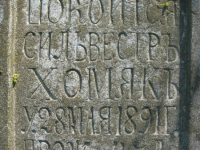 ПОКОИТСЯ
СИЛЬВЕСТРЪ
ХОМЯКЪ
У 28 МАЯ 1891 Г